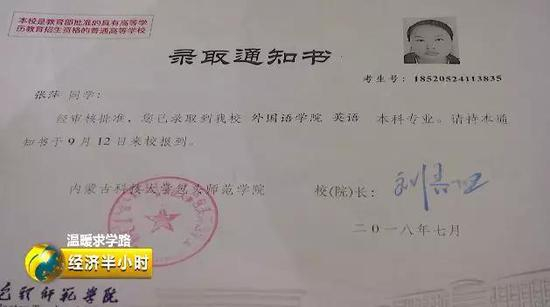 本校是教育部批准的具有高等学
历教育招生资格的普通高等学校
录取通知书
考生号: 18520524113835
张萍 同学:
经审核批准,您已录取到我校 外国语学院 英语 本科专业。请持本通
知书于9月12日来校报到。
内蒙古科技大学包头师范学院
校(院)长:
二〇一八年七月
温暖求学路
经济半小时
包头师范学院